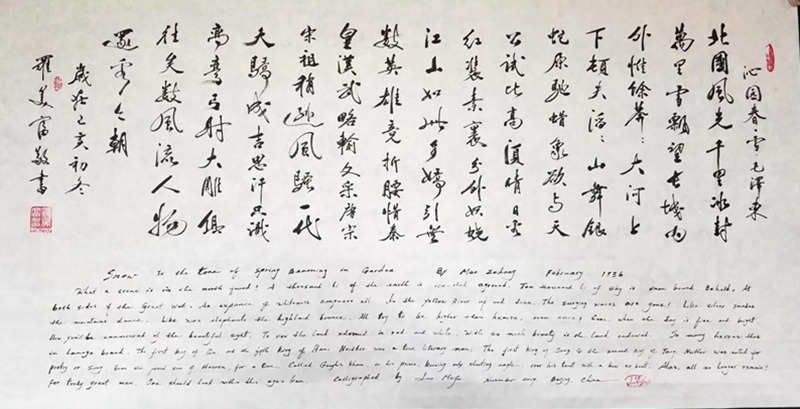 沁园春·雪·毛泽东
北國風光千里冰封
萬里雪飘望長城内
外惟餘莽々大河上
下頓失滔々山舞銀
蛇原驰蜡象欲与天
公试比高須晴日看
红装素裹分外妖娆
江山如此多嬌引無
數英雄竞折腰惜秦
皇漢武略輸文采唐宗
宋祖稍逊風騷一代
天驕成吉思汗只識
彎弓射大雕俱
往矣數風流人物
還看今朝
歲在己亥初冬
羅美富敬書
Snow to the tune of Spring Beaming in Garden By Mao Zedong February 1936
What a scene is in the north found! A thousand li of the earth is ice-clad aground. Ten thousand li of sky is snow bound. Behold. At
both sides of the Great Wall. An expanse of whiteness conquers all. In the Yellow River up and down. The surging waves are gone! Like silver snakes
the mountains dance. Like wax elephants the highland bounce. All try to be higher than heaven, even once! One, when the day is fine and bright.
of the beautiful sight. To see the land adorned in red and white. With so much beauty is the land endowed. So many heroes thus
in homage bowed. The first king of Qin and the fifth king of Han. Neither was a true literary man. The first king of Song & the second king of Tang. Neither was noted for
poetry or song. Even the proud son of Heaven, for a time. Called Genghis Khan, in his prime. Knowing only shooting eagle, over his tent with a bow so bent. Alas, all no longer remain!
For truly great men. One should look within this age's ken. Calligraphed by November 2019. Beijing, China